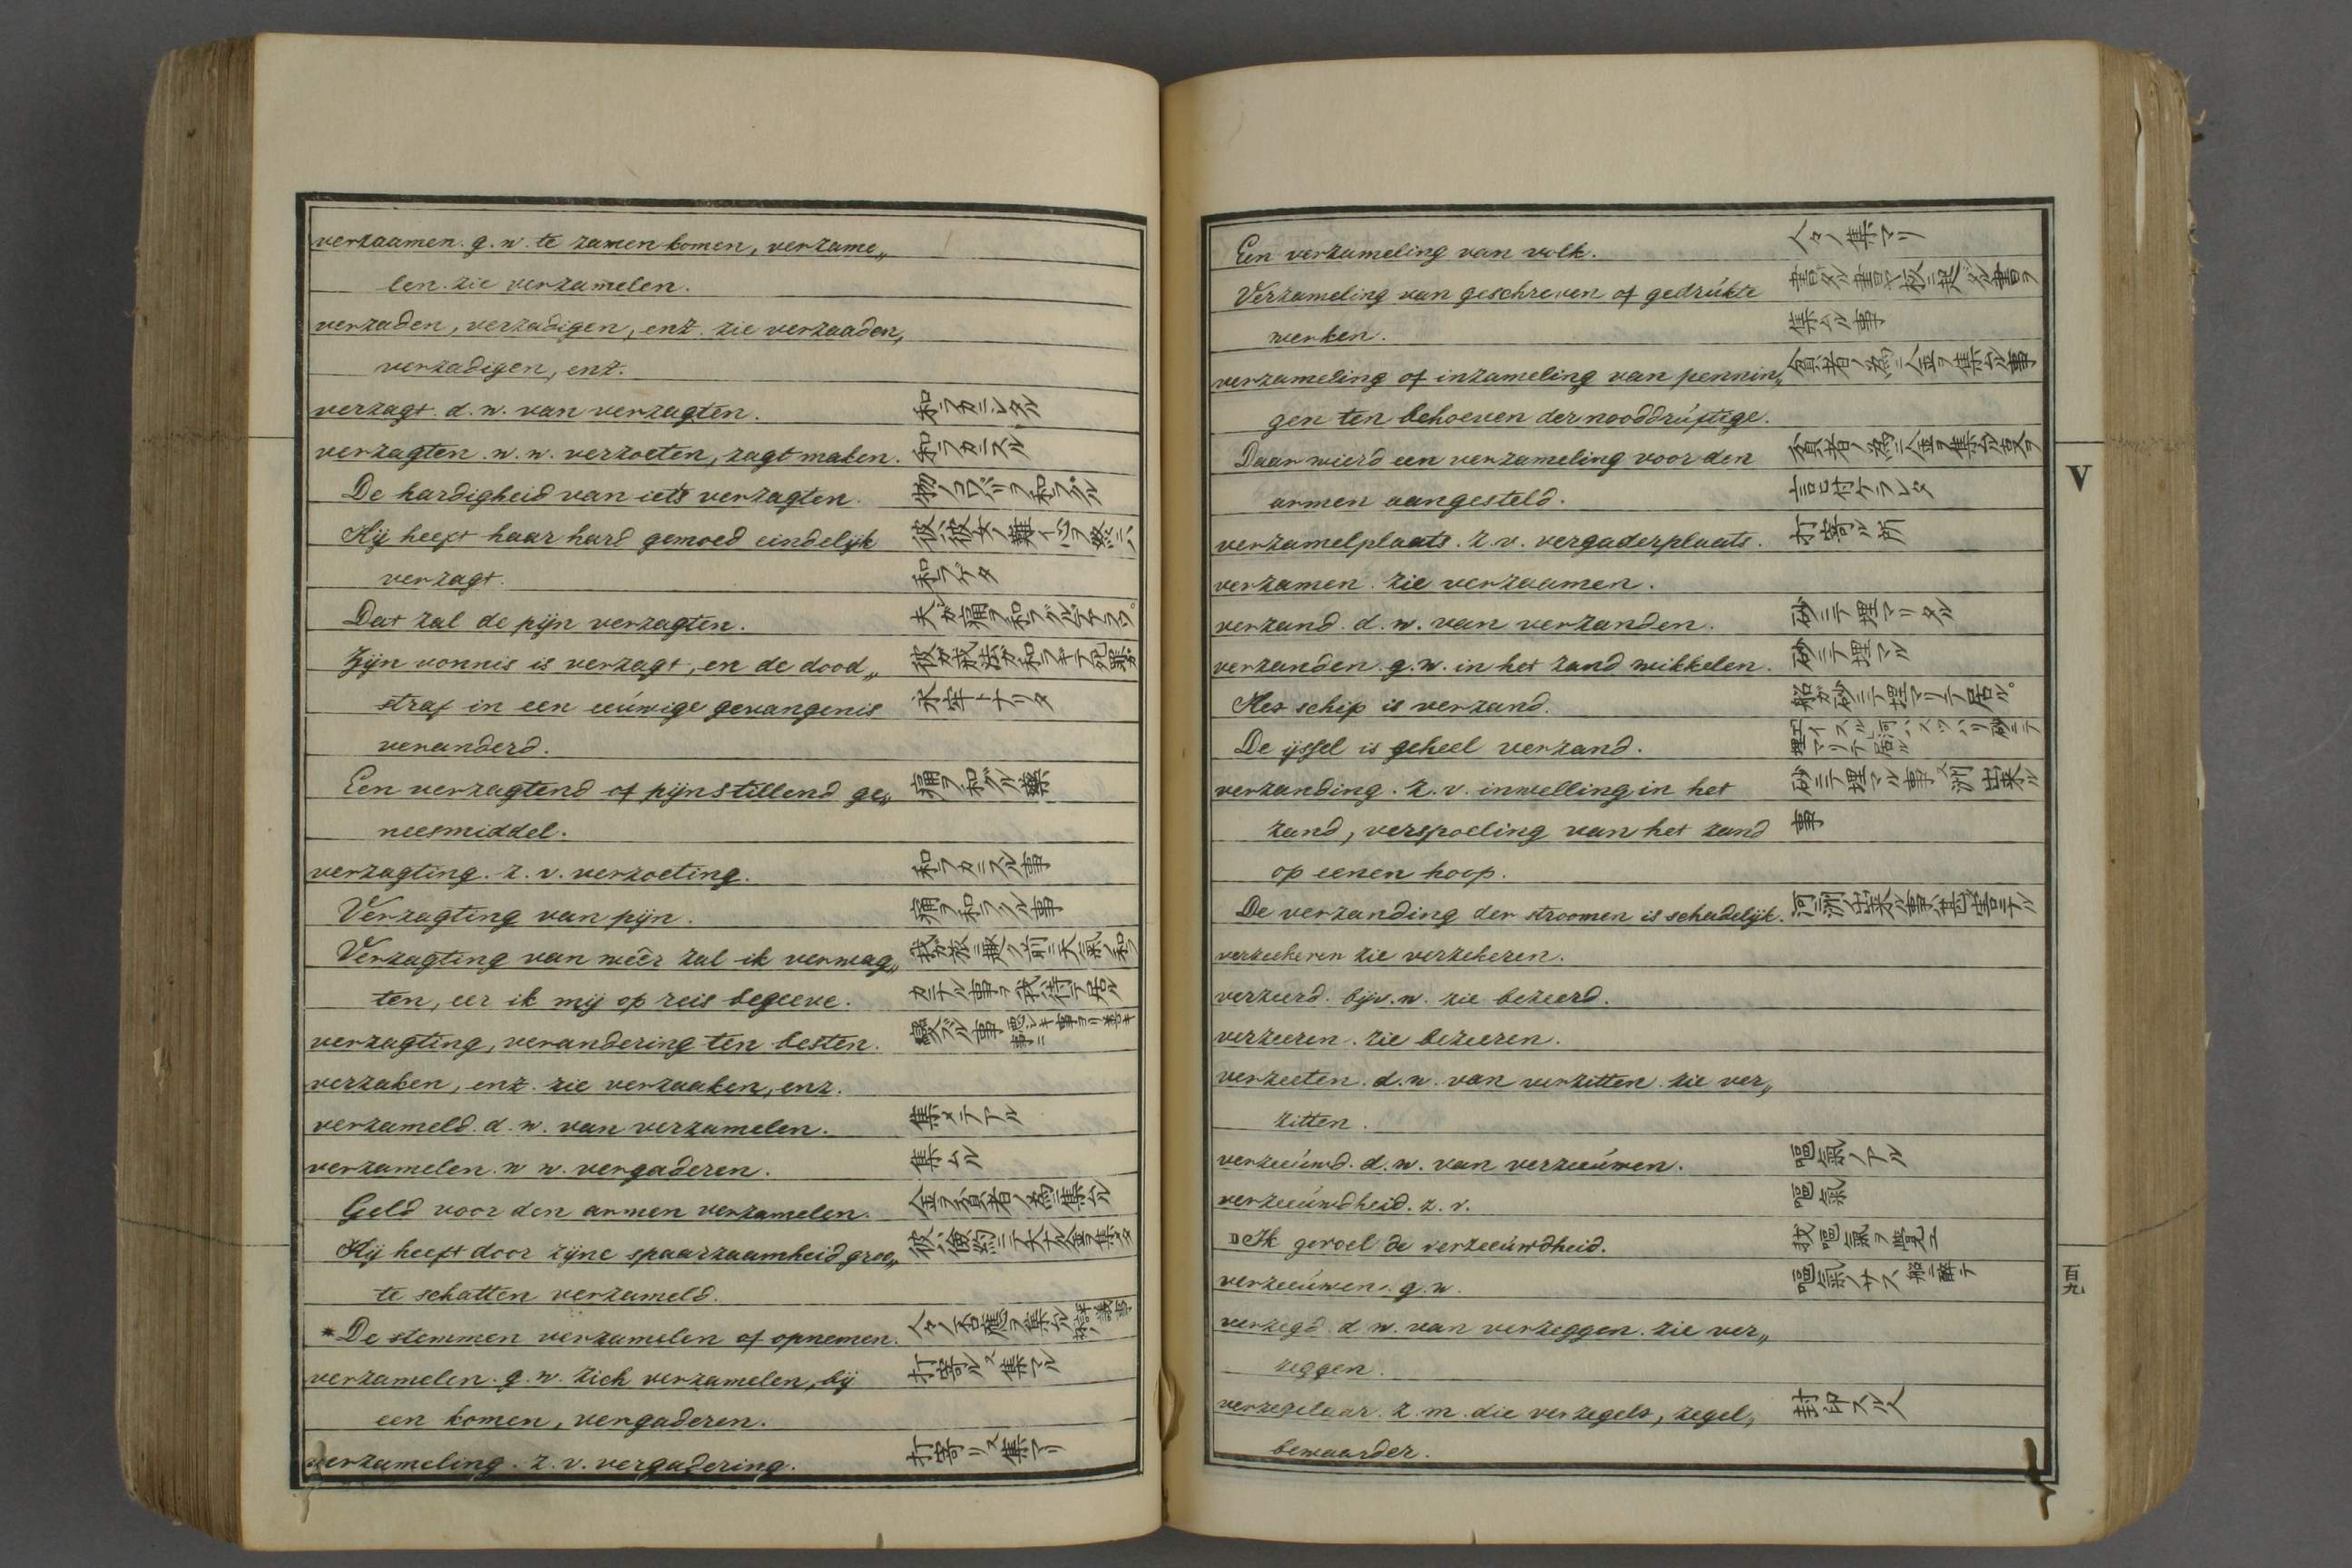 verzaamen. g. w. te zamen komen, verzame„
len. zie verzamelen.
verzaden, verzadigen, enz. zie verzaaden,
verzadigen, enz.
verzagt. d. w. van verzagten. 和ラカニシタル
verzagten. w. w. verzoeten, zagt maken. 和ラカニスル
De hardigheid van iets verzagten. 物ノコハバリヲ和ラグル
Hij heeft haar hard gemoed eindelijk 彼ハ彼女ノ難イ心ヲ終ニハ
verzagt. 和ラゲタ
Dat zal de pijn verzagten. 夫レガ痛ヲ和ラグルデアラウ。
Zijn vonnis is verzagt, en de dood„ 彼ガ戒法ガ和ラギテ死罪ガ
straf in een eeúwige gevangenis 永牢トナリタ
veranderd.
Een verzagtend of pijnstillend ge„ 痛ヲ和グル藥
neesmiddel.
verzagting. z. v. verzoeting. 和ラカニスル事
Verzagting van pijn. 痛ヲ和ラグル事
Verzagting van wêêr zal ik verwag„ 我ガ旅ニ趣ク前ニ天氣ノ和ラ
ten, eer ik mij op reis begeeve. カナル事ヲ我待テ居ル
verzagting, verandering ten besten. 變ズル事 悪シキ事ヨリ善キ事ニ
verzaken, enz. zie verzaaken, enz.
verzameld. d. w. van verzamelen. 集メテアル
verzamelen. w w. vergaderen. 集ムル
Geld voor den armen verzamelen. 金ヲ貧者ノ為ニ集ムル
Hij heeft door zijne spaarzaamheid groo„ 彼ハ儉約ニテ大ナル金ヲ集メタ
te schatten verzameld.
*De stemmen verzamelen of opnemen. 人々ノ否應ヲ集ムル
verzamelen. g. w. zich verzamelen, bij 打寄ル又集マル
een komen, vergaderen.
verzameling. z. v. vergadering. 打寄リ又集マリ
Een verzameling van volk. 人々ノ集マリ
Verzameling van geschreven of gedrúkte 書タル書ヤ板ニ起シタル書ヲ
werken. 集ムル事
verzameling of inzameling van pennin„ 貧者ノ為ニ金ヲ集ムル事
gen ten behoeven der nooddrúftige.
Daar wierd een verzameling voor den 貧者ノ為ニ金ヲ集ムル支ヲ
armen aangesteld. 言ヒ付ケラレタ
verzamelplaats. z. v. vergaderplaats. 打寄ル所
verzamen. zie verzaamen.
verzand. d. w. van verzanden. 砂ニテ埋マリタル
verzanden. g. w. in het zand wikkelen. 砂ニテ埋マル
Het schip is verzand. 船ガ砂ニテ埋マリテ居ル。
De ijssel is geheel verzand. エイスル河ハスツハリ砂ニテ埋マリテ居ル
verzanding. z. v. inwelling in het 砂ニテ埋マル事又洲ノ出来ル
zand, verspoeling van het zand 事
op eenen hoop.
De verzanding der stroomen is schadelijk. 河ニ洲ノ出来ル事ハ甚ダ害ニナル
verzeekeren zie verzekeren.
verzeerd. bijv. w. zie bezeerd.
verzeeren. zie bezeeren.
verzeeten. d. w. van verzitten. zie ver„
zitten.
verzeeúwd. d. w. van verzeeúwen. 嘔氣ノアル
verzeeúwdheid. z. v. 嘔氣
Ik gevoel de verzeeúwdheid. 我嘔氣ヲ覺エ
verzeeúwen. g. w. 嘔氣ノサス 船ニ醉テ
verzegd. d w. van verzeggen. zie ver„
zeggen.
verzegelaar. z. m. die verzegelt, zegel„ 封印スル人
bewaarder.
V
百九